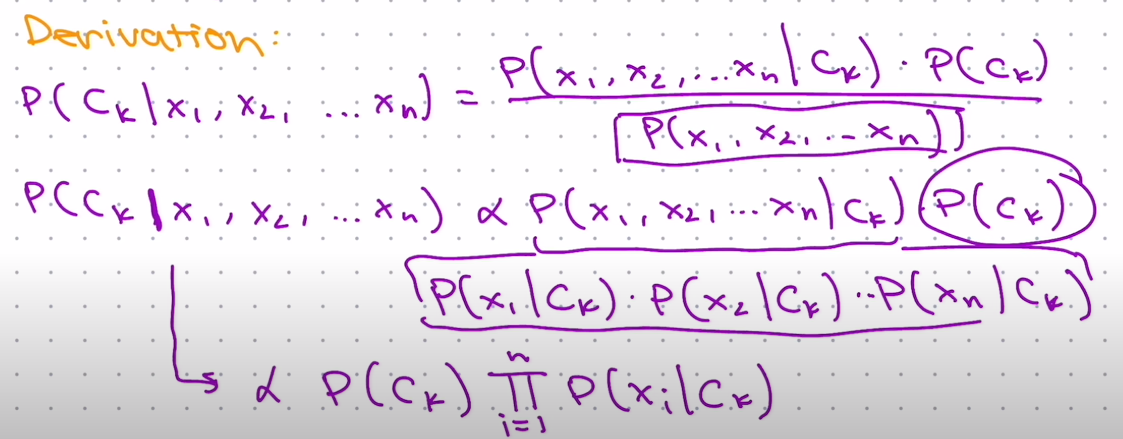 Derivation:
P(Cₖ|x₁, x₂, ...xₙ) = P(x₁, x₂, ...xₙ|Cₖ) · P(Cₖ)
P(x₁, x₂, ..xₙ)
P(Cₖ|x₁, x₂, ...xₙ) ∝ P(x₁, x₂, ...xₙ|Cₖ) P(Cₖ)
P(x₁|Cₖ) · P(x₂|Cₖ) ·· P(xₙ|Cₖ)
↳ ∝ P(Cₖ) ∏ᵢ₌₁ⁿ P(xᵢ|Cₖ)